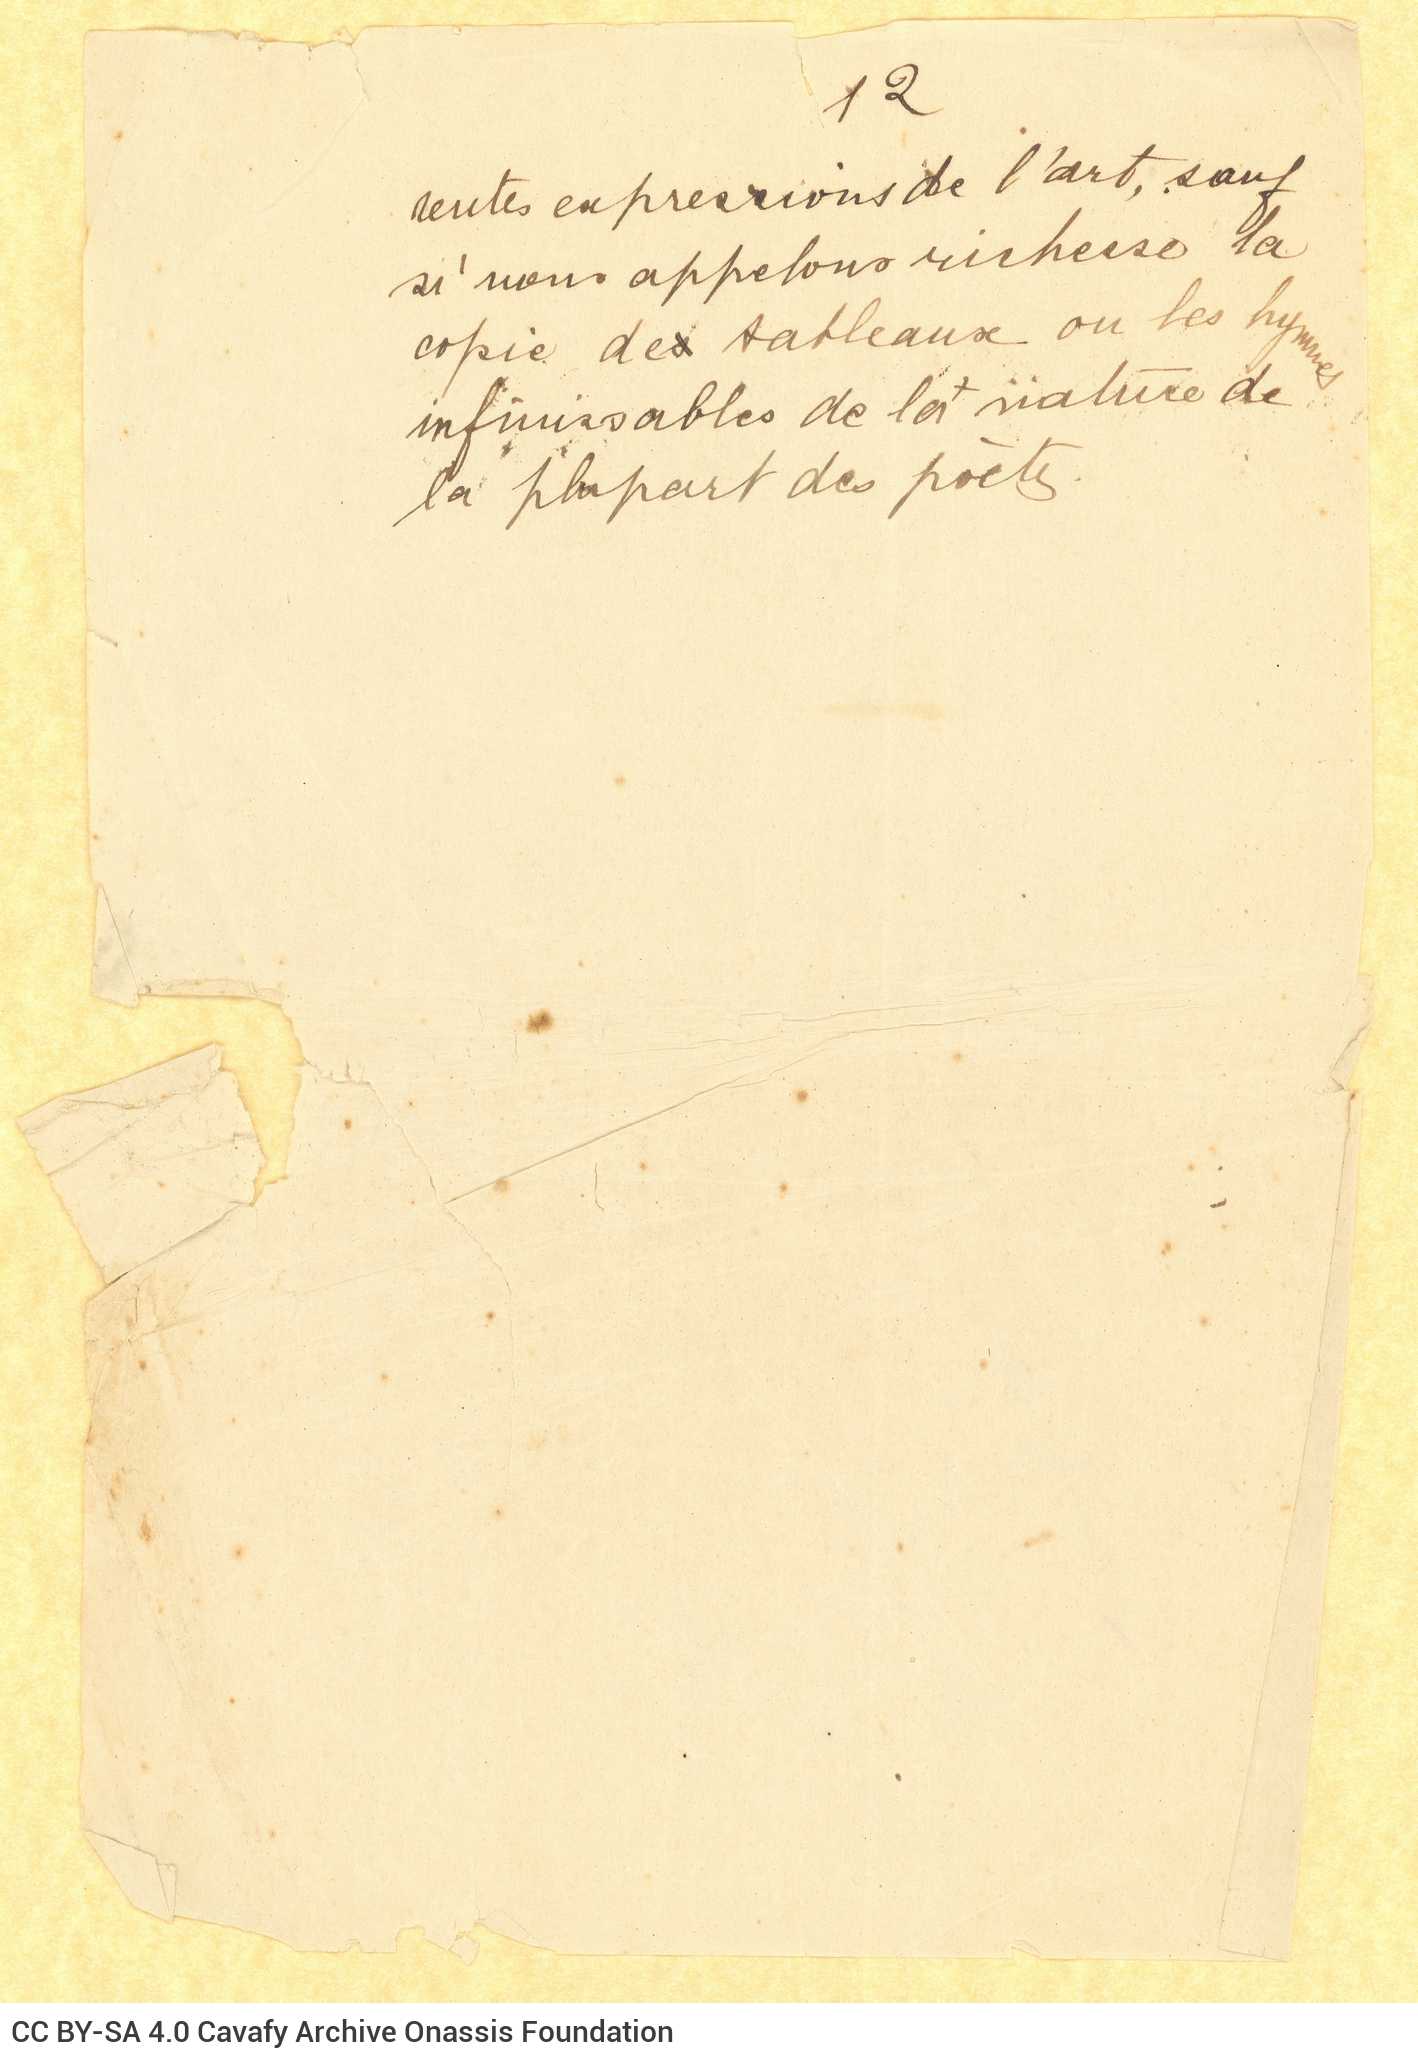 12
rentes expressions de l'art, sauf
si nous appelons richesse la
copie des tableaux ou les hymnes
infinissables de la nature de
la plupart des poètes.
CC BY-SA 4.0 Cavafy Archive Onassis Foundation